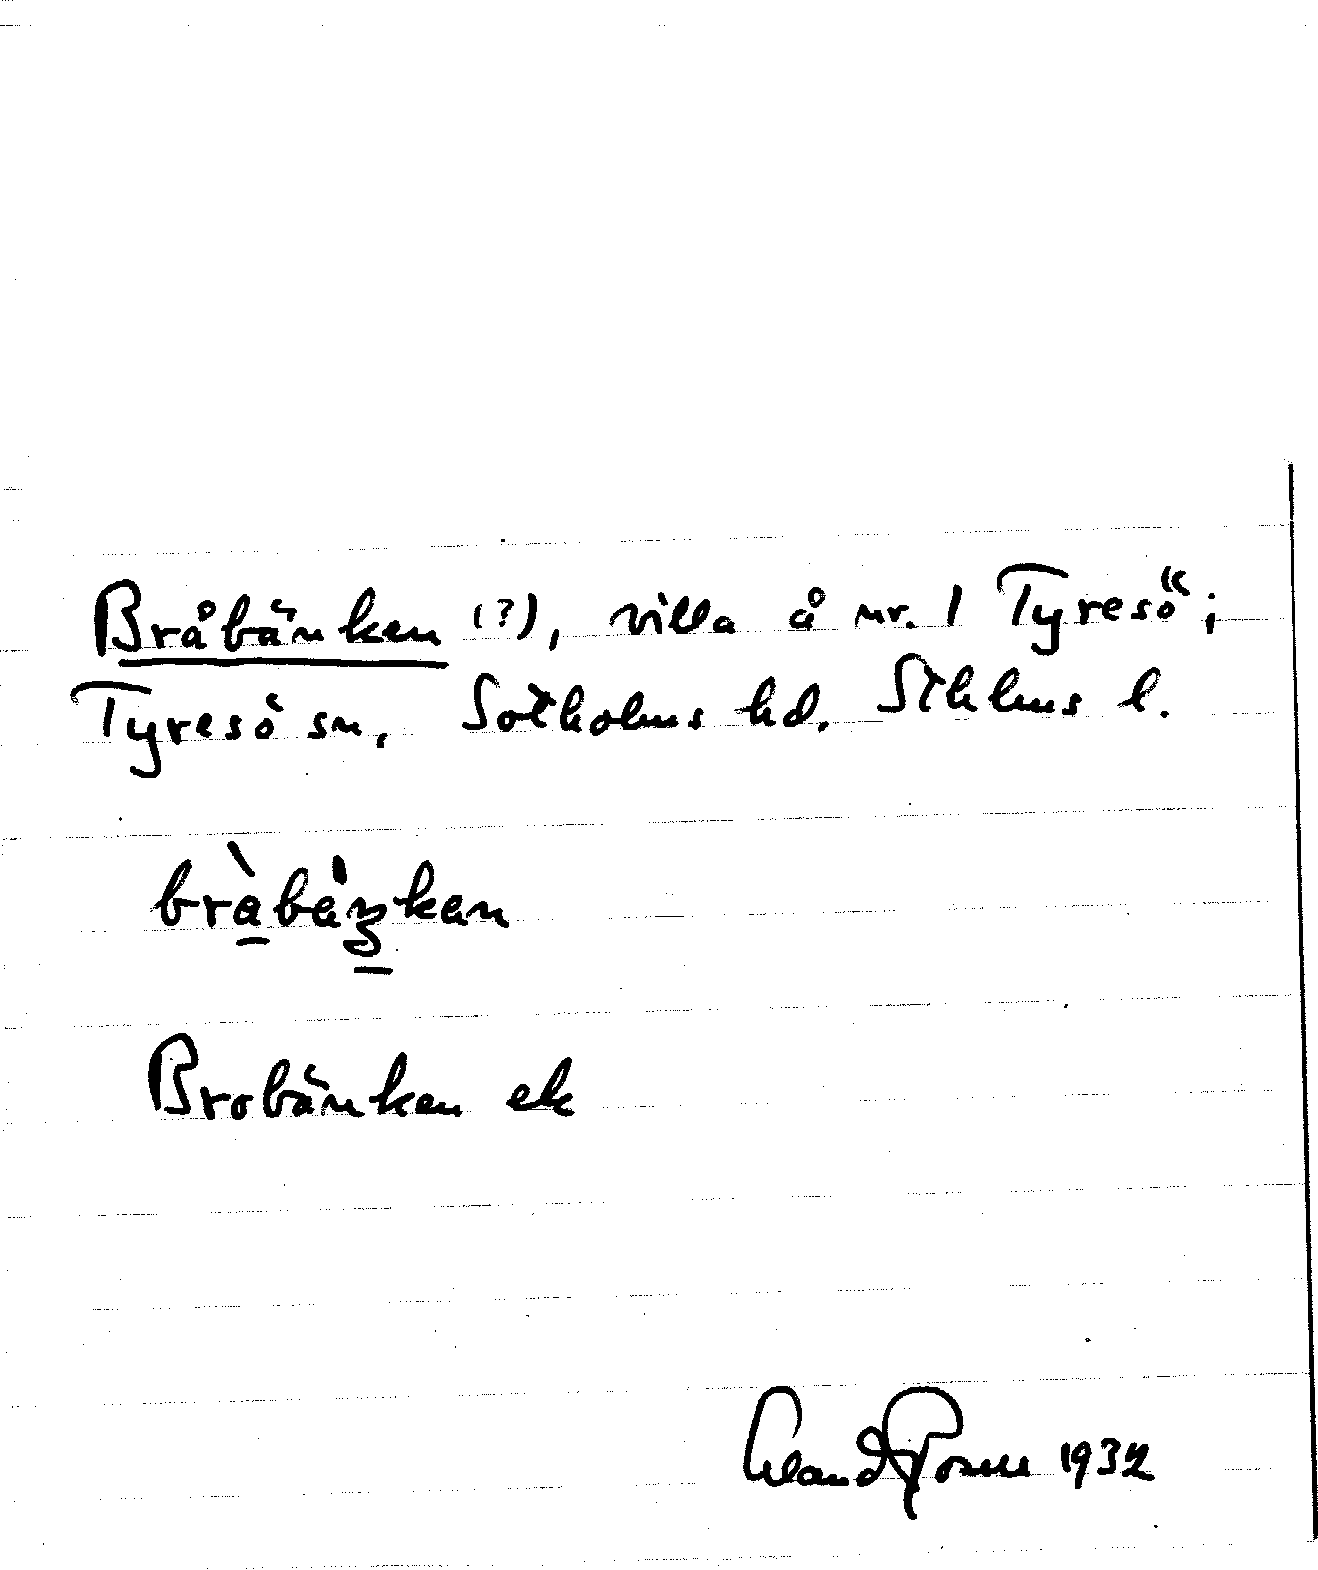 Bråbänken (?), villa å nr. 1 Tyresö i
Tyresö sn, Sotholms hd. Sthlms l.
bràbáŋkan
Brobänken ek
1932